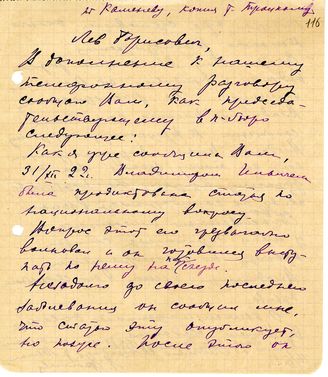 т. Каменеву, копия т. Троцкому
116
Лев Борисович,
В дополнение к нашему
телефонному разговору
сообщаю Вам, как председа-
тельствующему в п-бюро
следующее:
Как я уже сообщила Вам,
31/XII 22 г. Владимиром Ильичем
была продиктована статья по
национальному вопросу.
Вопрос этот его чрезвычайно
волновал и он готовился высту-
пать по нему на п. съезде.
Незадолго до своего последнего
заболевания он сообщил мне,
что статью эту опубликует,
но позже. После этого он